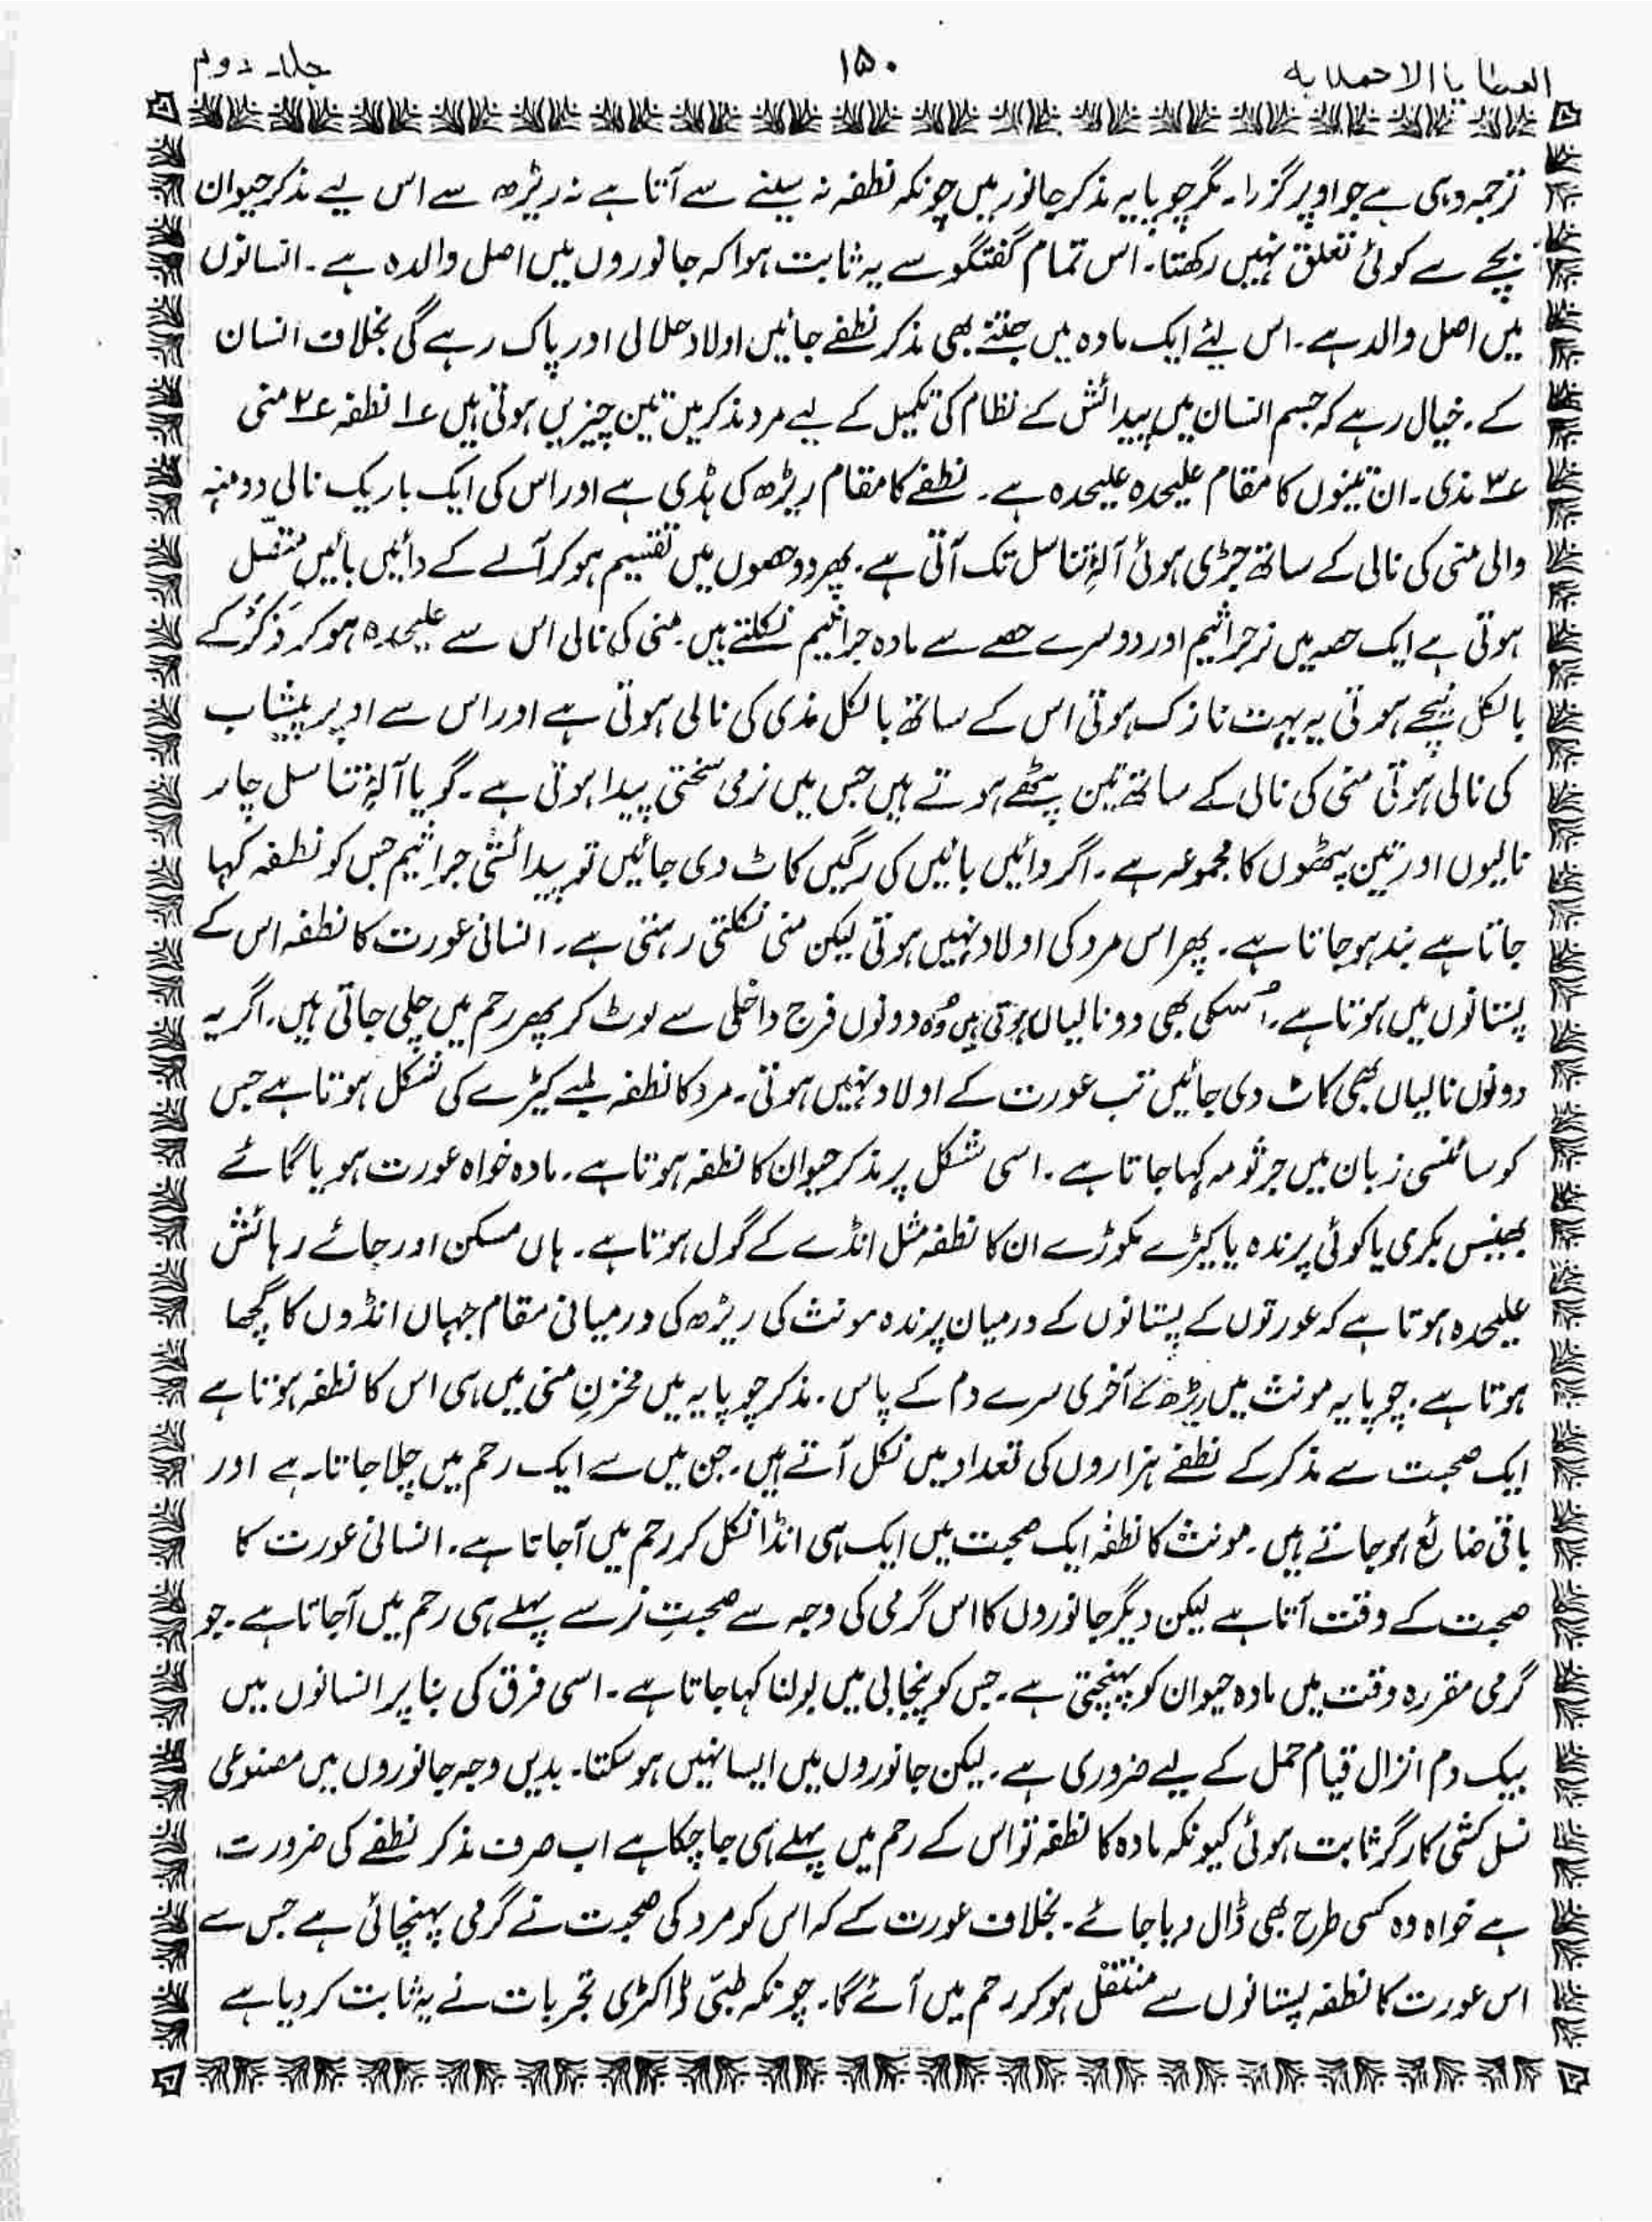 العطایا الاحمدیہ ۱۵۰ جلد دوم
ترجمہ وہی ہے جو اوپر گزرا۔ مگر چوپایہ مذکر جانور میں چونکہ نطفہ نہ سینے سے آتا ہے نہ ریڑھ سے اس لیے مذکر حیوان
بچے سے کوئی تعلق نہیں رکھتا۔ اس تمام گفتگو سے یہ ثابت ہوا کہ جانوروں میں اصل والدہ ہے۔ انسانوں
میں اصل والد ہے۔ اس لیئے ایک مادہ میں جتنے بھی مذکر نطفے جائیں اولاد حلالی اور پاک رہے گی بخلاف انسان
کے۔ خیال رہے کہ جسم انسان میں پیدائش کے نظام کی تکمیل کے لیے مرد مذکر میں تین چیزیں ہوتی ہیں ۱؎ نطفہ ۲؎ منی
۳؎ مذی۔ ان تینوں کا مقام علیحدہ علیحدہ ہے۔ نطفے کا مقام ریڑھ کی ہڈی ہے اور اس کی ایک باریک نالی دو منہ
والی منی کی نالی کے ساتھ جڑی ہوئی آلۂ تناسل تک آتی ہے۔ پھر دو حصوں میں تقسیم ہو کر آلے کے دائیں بائیں متصل
ہوتی ہے ایک حصہ میں نر جراثیم اور دوسرے حصے سے مادہ جراثیم نکلتے ہیں۔ منی کی نالی اس سے علیحدہ ہو کر ذَکَرْ کے
بالکل نیچے ہوتی یہ بہت نازک ہوتی اس کے ساتھ بالکل مذی کی نالی ہوتی ہے اور اس سے اوپر پیشاب
کی نالی ہوتی منی کی نالی کے ساتھ تین پٹھے ہوتے ہیں جس میں نرمی سختی پیدا ہوتی ہے۔ گویا آلۂ تناسل چار
نالیوں اور تین پٹھوں کا مجموعہ ہے۔ اگر دائیں بائیں کی رگیں کاٹ دی جائیں تو پیدائشی جراثیم جس کو نطفہ کہا
جاتا ہے بند ہو جاتا ہے۔ پھر اس مرد کی اولاد نہیں ہوتی لیکن منی نکلتی رہتی ہے۔ انسانی عورت کا نطفہ اس کے
پستانوں میں ہوتا ہے۔ اُسکی بھی دو نالیاں ہوتی ہیں وُہ دونوں فرج داخلی سے لوٹ کر پھر رحم میں چلی جاتی ہیں۔ اگر یہ
دونوں نالیاں بھی کاٹ دی جائیں تب عورت کے اولاد نہیں ہوتی۔ مرد کا نطفہ لمبے کیڑے کی شکل ہوتا ہے جس
کو سائنسی زبان میں جرثومہ کہا جاتا ہے۔ اسی شکل پر مذکر حیوان کا نطفہ ہوتا ہے۔ مادہ خواہ عورت ہو یا گائے
بھینس بکری یا کوئی پرندہ یا کیڑے مکوڑے ان کا نطفہ مثل انڈے کے گول ہوتا ہے۔ ہاں مسکن اور جائے رہائش
علیحدہ ہوتا ہے کہ عورتوں کے پستانوں کے درمیان پرندہ مونث کی ریڑھ کی درمیانی مقام جہاں انڈوں کا گچھا
ہوتا ہے۔ چوپایہ مونث میں ریڑھ کے آخری سرے دم کے پاس۔ مذکر چوپایہ میں مخزنِ منی میں ہی اس کا نطفہ ہوتا ہے
ایک صحبت سے مذکر کے نطفے ہزاروں کی تعداد میں نکل آتے ہیں۔ جن میں سے ایک رحم میں چلا جاتا ہے اور
باقی ضائع ہو جاتے ہیں۔ مونث کا نطفہ ایک صحبت میں ایک ہی انڈا نکل کر رحم میں آجاتا ہے۔ انسانی عورت کا
صحبت کے وقت آتا ہے لیکن دیگر جانوروں کا اس گرمی کی وجہ سے صحبتِ نر سے پہلے ہی رحم میں آجاتا ہے۔ جو
گرمی مقررہ وقت میں مادہ حیوان کو پہنچتی ہے۔ جس کو پنجابی میں بولنا کہا جاتا ہے۔ اسی فرق کی بنا پر انسانوں میں
بیک دم انزال قیام حمل کے لیے ضروری ہے۔ لیکن جانوروں میں ایسا نہیں ہو سکتا۔ بدیں وجہ جانوروں میں مصنوعی
نسل کشی کارگر ثابت ہوئی کیونکہ مادہ کا نطفہ تو اس کے رحم میں پہلے ہی جا چکا ہے اب صرف مذکر نطفے کی ضرورت
ہے خواہ وہ کسی طرح بھی ڈال دیا جائے۔ بخلاف عورت کے کہ اس کو مرد کی صحبت نے گرمی پہنچائی ہے جس سے
اس عورت کا نطفہ پستانوں سے منتقل ہو کر رحم میں آئے گا۔ چونکہ طبّی ڈاکٹری تجربات نے یہ ثابت کر دیا ہے